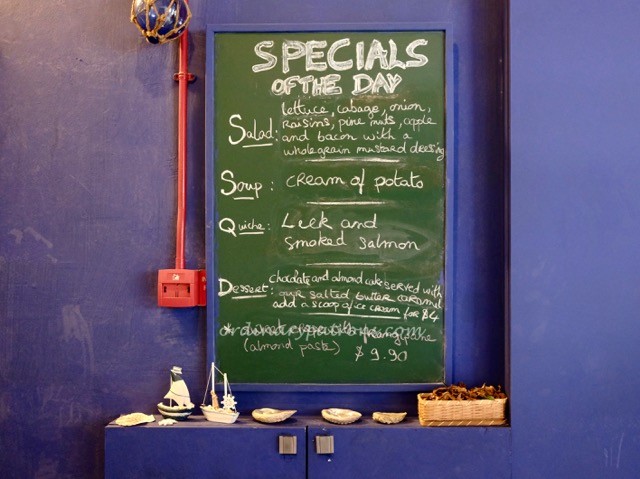 SPECIALS
OF THE DAY
Salad: lettuce, cabage, onion,
raisins, pine nuts, apple
and bacon with a
wholegrain mustard dressing
Soup: cream of potato
Quiche: Leek and
smoked salmon
Dessert: chocolate and almond cake served with
our salted butter caramel
add a scoop of ice cream for $4
* crepe with frangipane
(almond paste) $9.90
ordinarypatrons.com